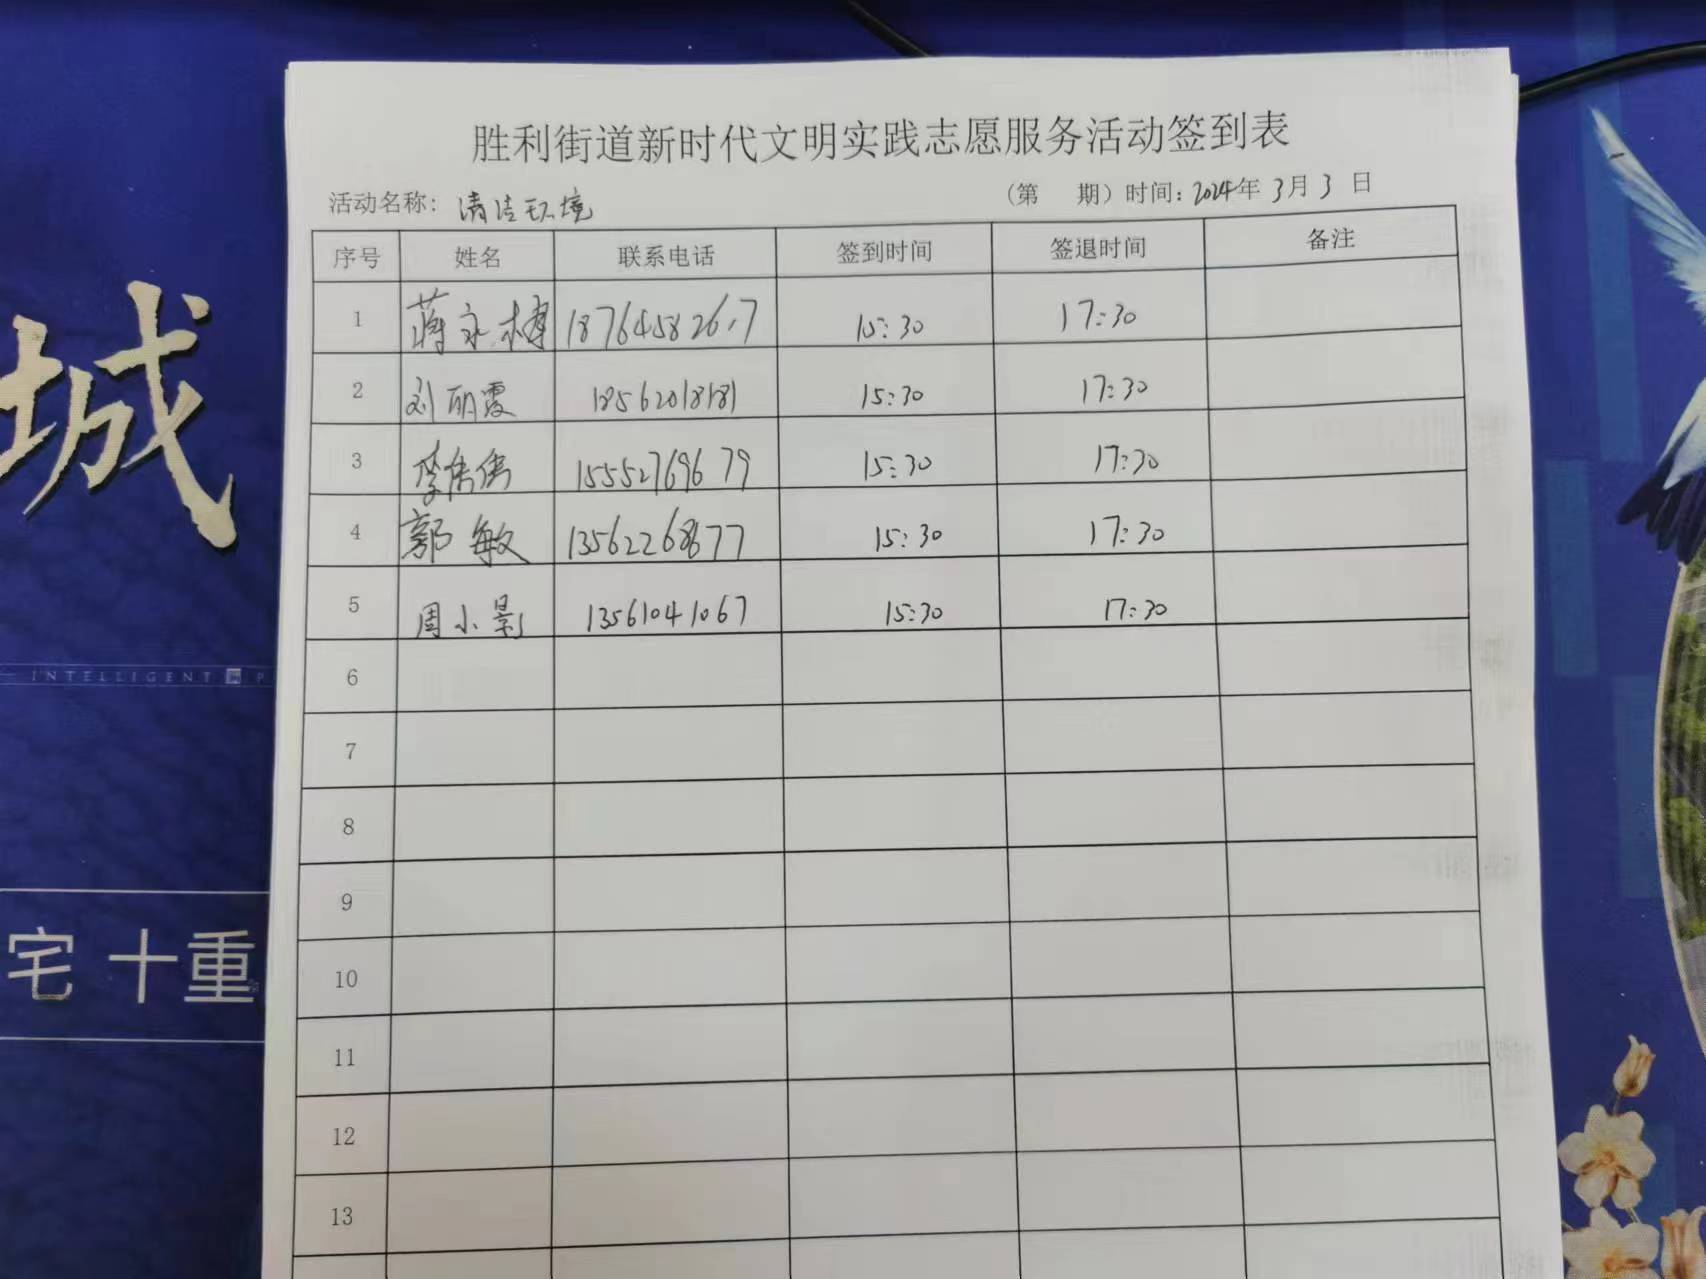 胜利街道新时代文明实践志愿服务活动签到表
活动名称: 清洁环境 (第 期) 时间: 2024年 3月 3 日
序号 姓名 联系电话 签到时间 签退时间 备注
1 蒋永博 15:30 17:30
2 刘丽霞 18562018181 15:30 17:30
3 李伟伟 15552769679 15:30 17:30
4 郭敏 13562268677 15:30 17:30
5 周小影 13561041067 15:30 17:30
6
7
8
9
10
11
12
13
城
INTELLIGENT
宅 十重